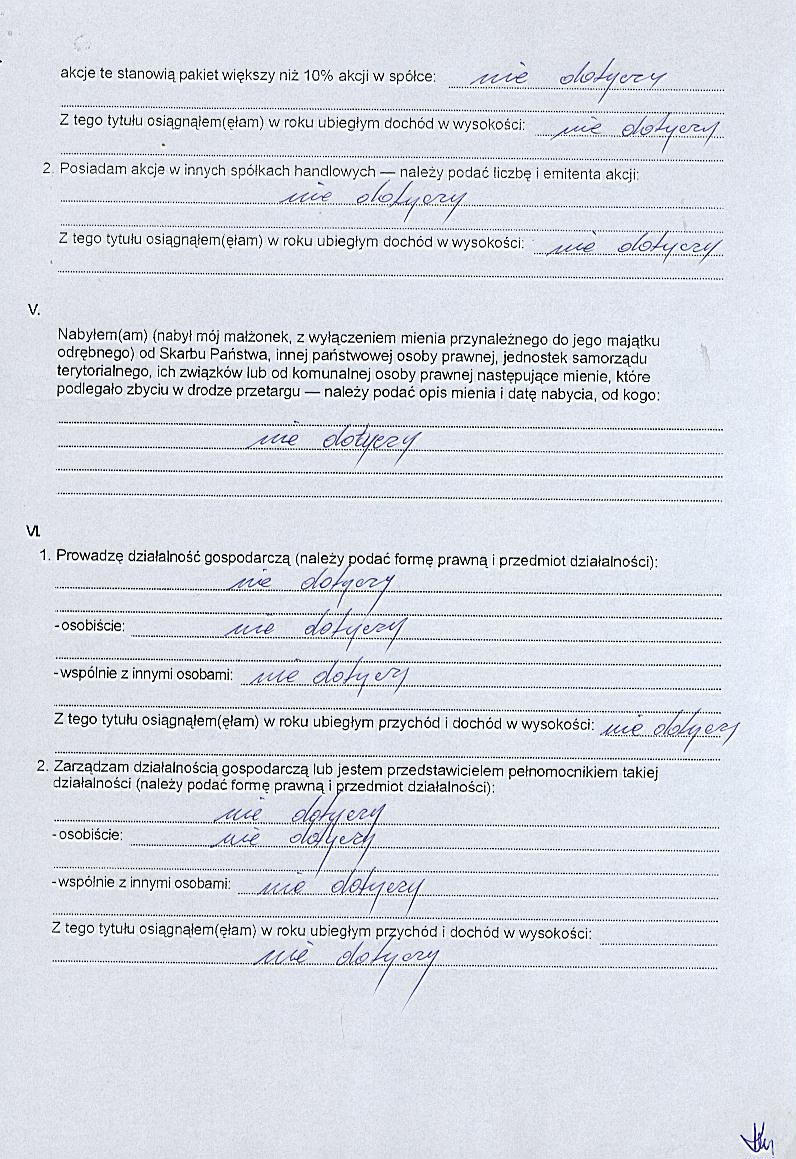 akcje te stanowią pakiet większy niż 10% akcji w spółce: nie dotyczy
Z tego tytułu osiągnąłem(ęłam) w roku ubiegłym dochód w wysokości: nie dotyczy
2. Posiadam akcje w innych spółkach handlowych — należy podać liczbę i emitenta akcji:
nie dotyczy
Z tego tytułu osiągnąłem(ęłam) w roku ubiegłym dochód w wysokości: nie dotyczy
V.
Nabyłem(am) (nabył mój małżonek, z wyłączeniem mienia przynależnego do jego majątku
odrębnego) od Skarbu Państwa, innej państwowej osoby prawnej, jednostek samorządu
terytorialnego, ich związków lub od komunalnej osoby prawnej następujące mienie, które
podlegało zbyciu w drodze przetargu — należy podać opis mienia i datę nabycia, od kogo:
nie dotyczy
VI.
1. Prowadzę działalność gospodarczą (należy podać formę prawną i przedmiot działalności):
nie dotyczy
-osobiście: nie dotyczy
-wspólnie z innymi osobami: nie dotyczy
Z tego tytułu osiągnąłem(ęłam) w roku ubiegłym przychód i dochód w wysokości: nie dotyczy
2. Zarządzam działalnością gospodarczą lub jestem przedstawicielem pełnomocnikiem takiej
działalności (należy podać formę prawną i przedmiot działalności):
nie dotyczy
-osobiście: nie dotyczy
-wspólnie z innymi osobami: nie dotyczy
Z tego tytułu osiągnąłem(ęłam) w roku ubiegłym przychód i dochód w wysokości:
nie dotyczy